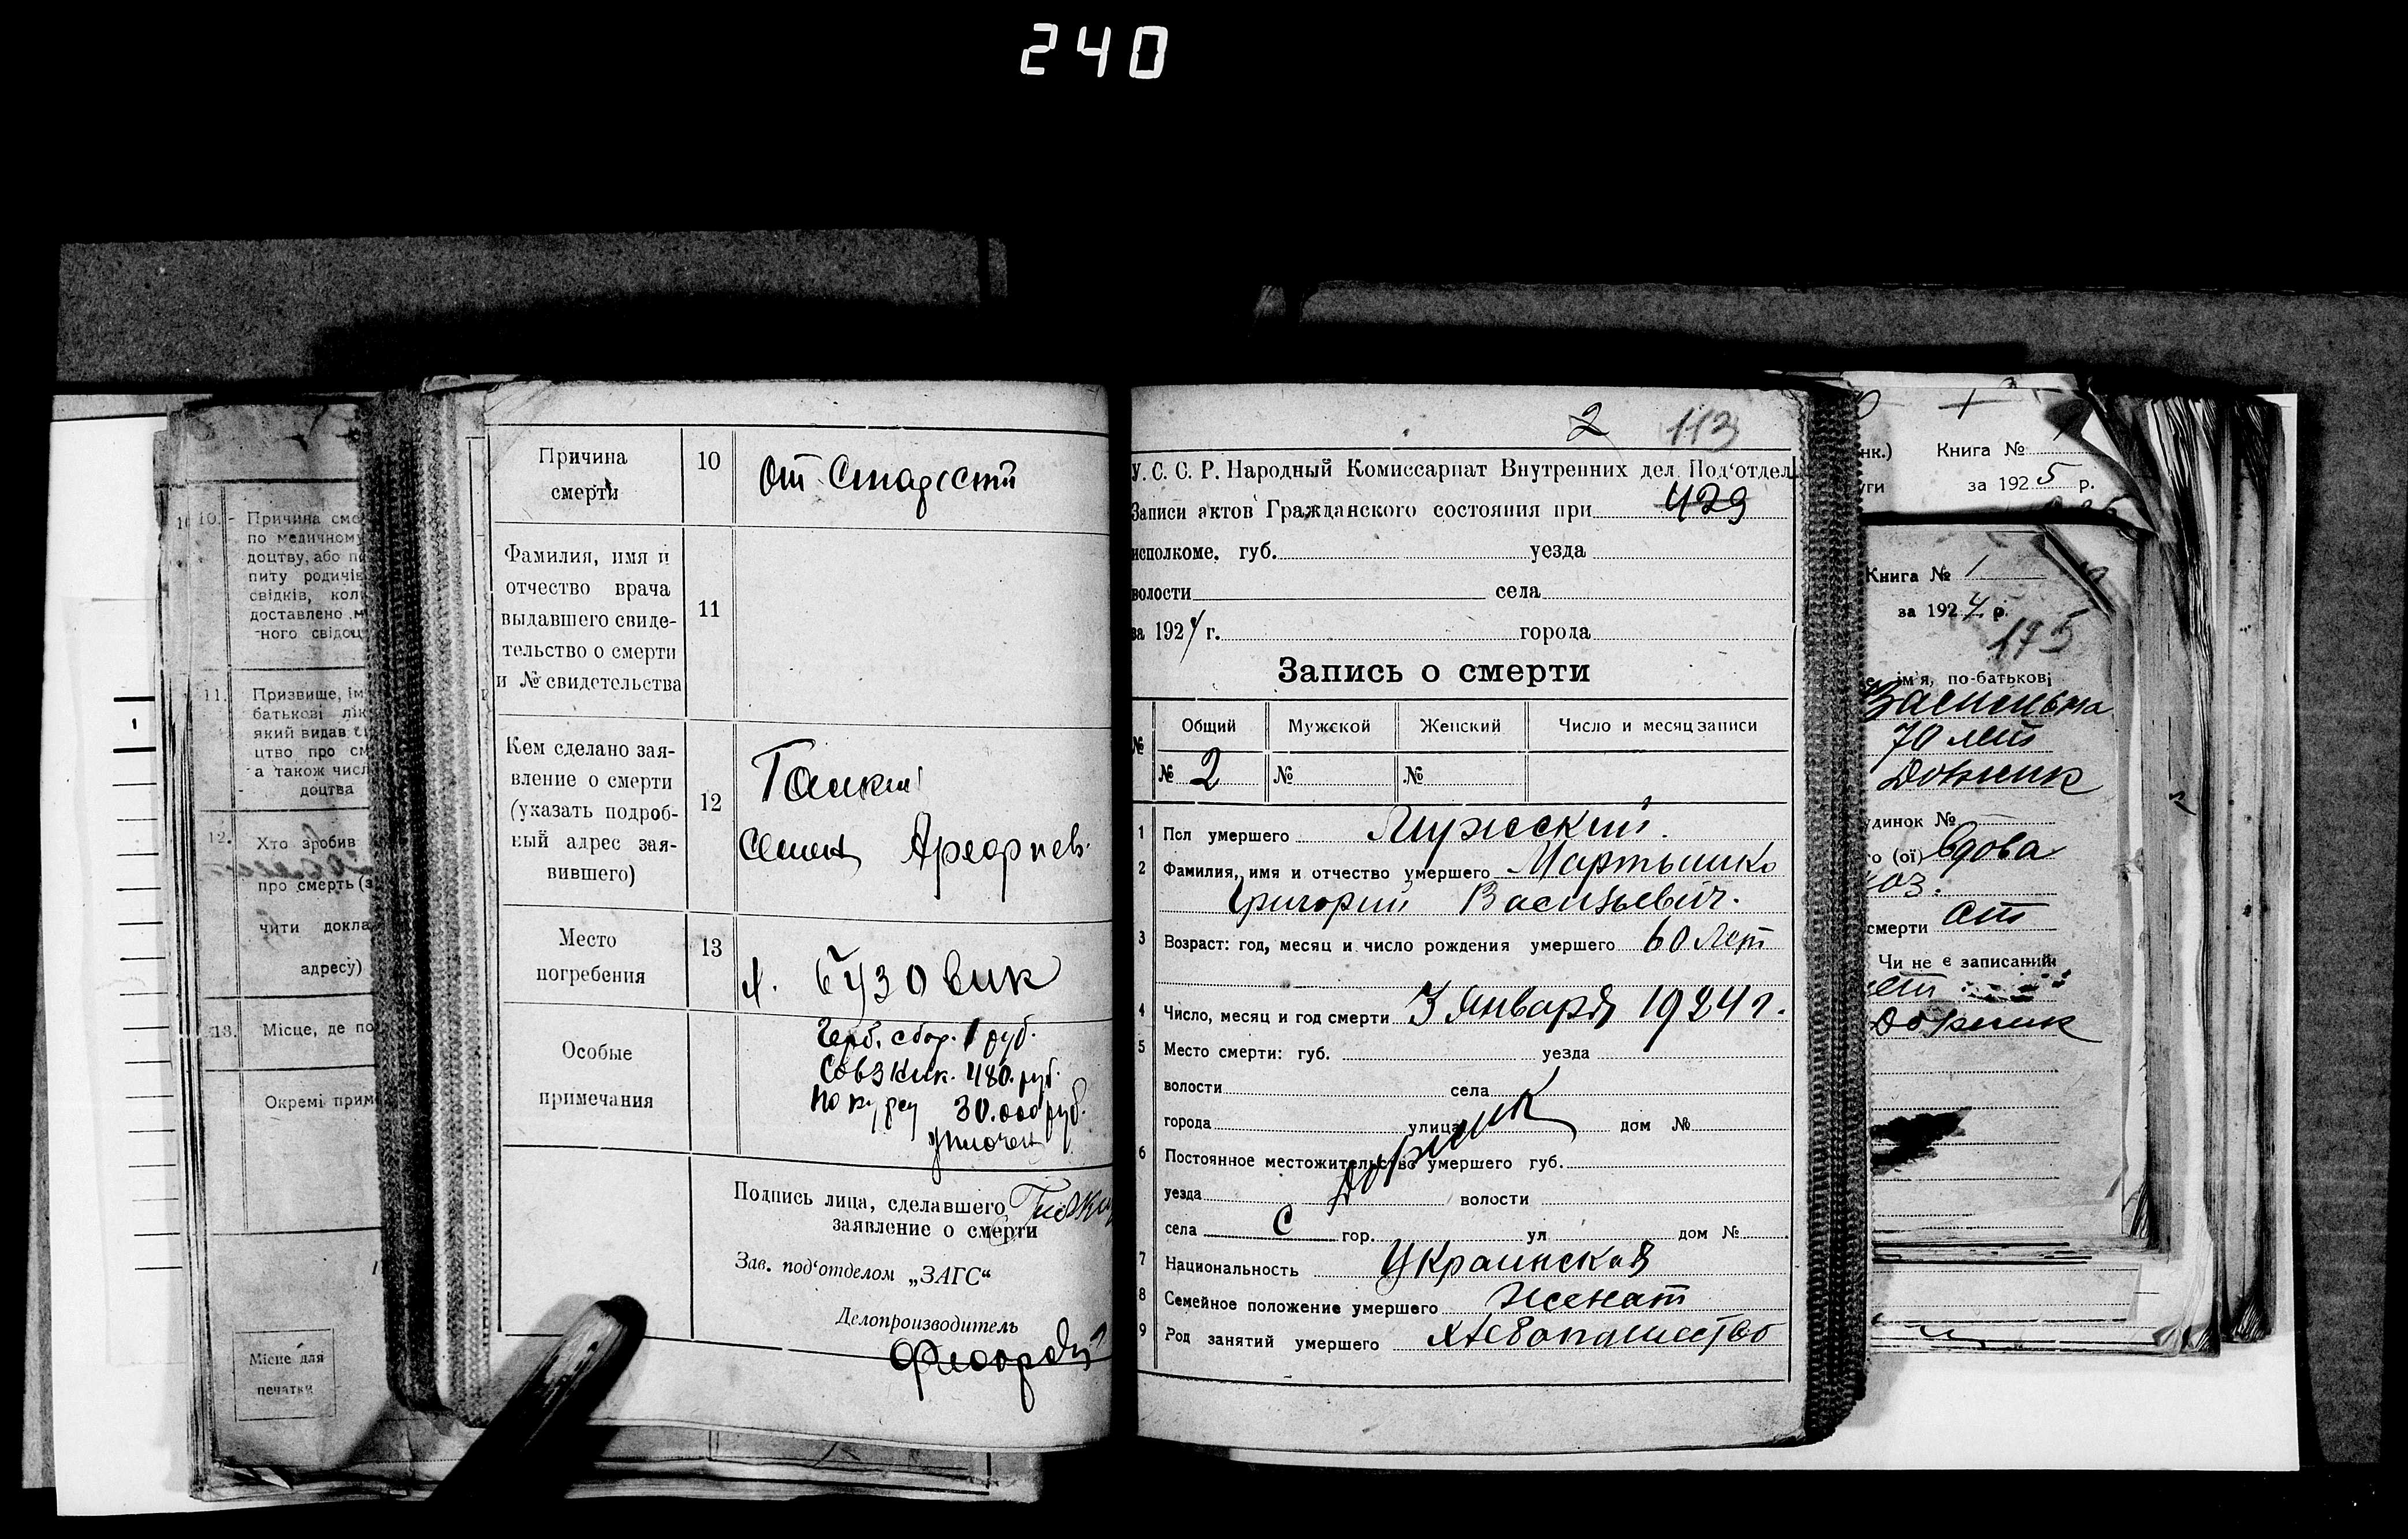 240
Причина
смерти
10
От Старости
Фамилия, имя и
отчество врача
выдавшего свиде-
тельство о смерти
и № свидетельства
11
Кем сделано зая-
вление о смерти
(указать подроб-
ный адрес зая-
вившего)
12
Семен
Место
погребения
13
Особые
примечания
Герб. сбор. 1 руб.
480. руб.
по курсу 30.000 руб.
Подпись лица, сделавшего
заявление о смерти
Зав. под'отделом „ЗАГС“
Делопроизводитель
2 113
У. С. С. Р. Народный Комиссариат Внутренних дел. Под'отдел
Записи актов Гражданского состояния при 429
исполкоме. губ. уезда
волости села
за 1924 г. города
Запись о смерти
№ Общий Мужской Женский Число и месяц записи
№ 2 № №
1 Пол умершего Мужской.
2 Фамилия, имя и отчество умершего Мартышко
Григорий Васильевич.
3 Возраст: год, месяц и число рождения умершего 60 лет
4 Число, месяц и год смерти 3 Января 1924 г.
5 Место смерти: губ. уезда
волости села
города улица дом №
6 Постоянное местожительство умершего губ.
уезда волости
села С гор. ул дом №
7 Национальность Украинская
8 Семейное положение умершего Женат
9 Род занятий умершего Хлебопашество
10. Причина сме
по медичному
доцтву, або п
питу родичів
свідків, кол
доставлено м
ного свідоц
11. Призвище, ім
батькові лік
який видав
цтво про см
а також числ
доцтва
12. Хто зробив
про смерть (з
чити докла
адресу)
13. Місце, де по
Окремі прим
Місце для
печатки
нк.) Книга №
уги за 1925 р.
Книга № 1
за 1924 р.
195
ім'я, по-батькові
70 лет
удинок №
го (ої) вдова
смерти от
Чи не є записаний